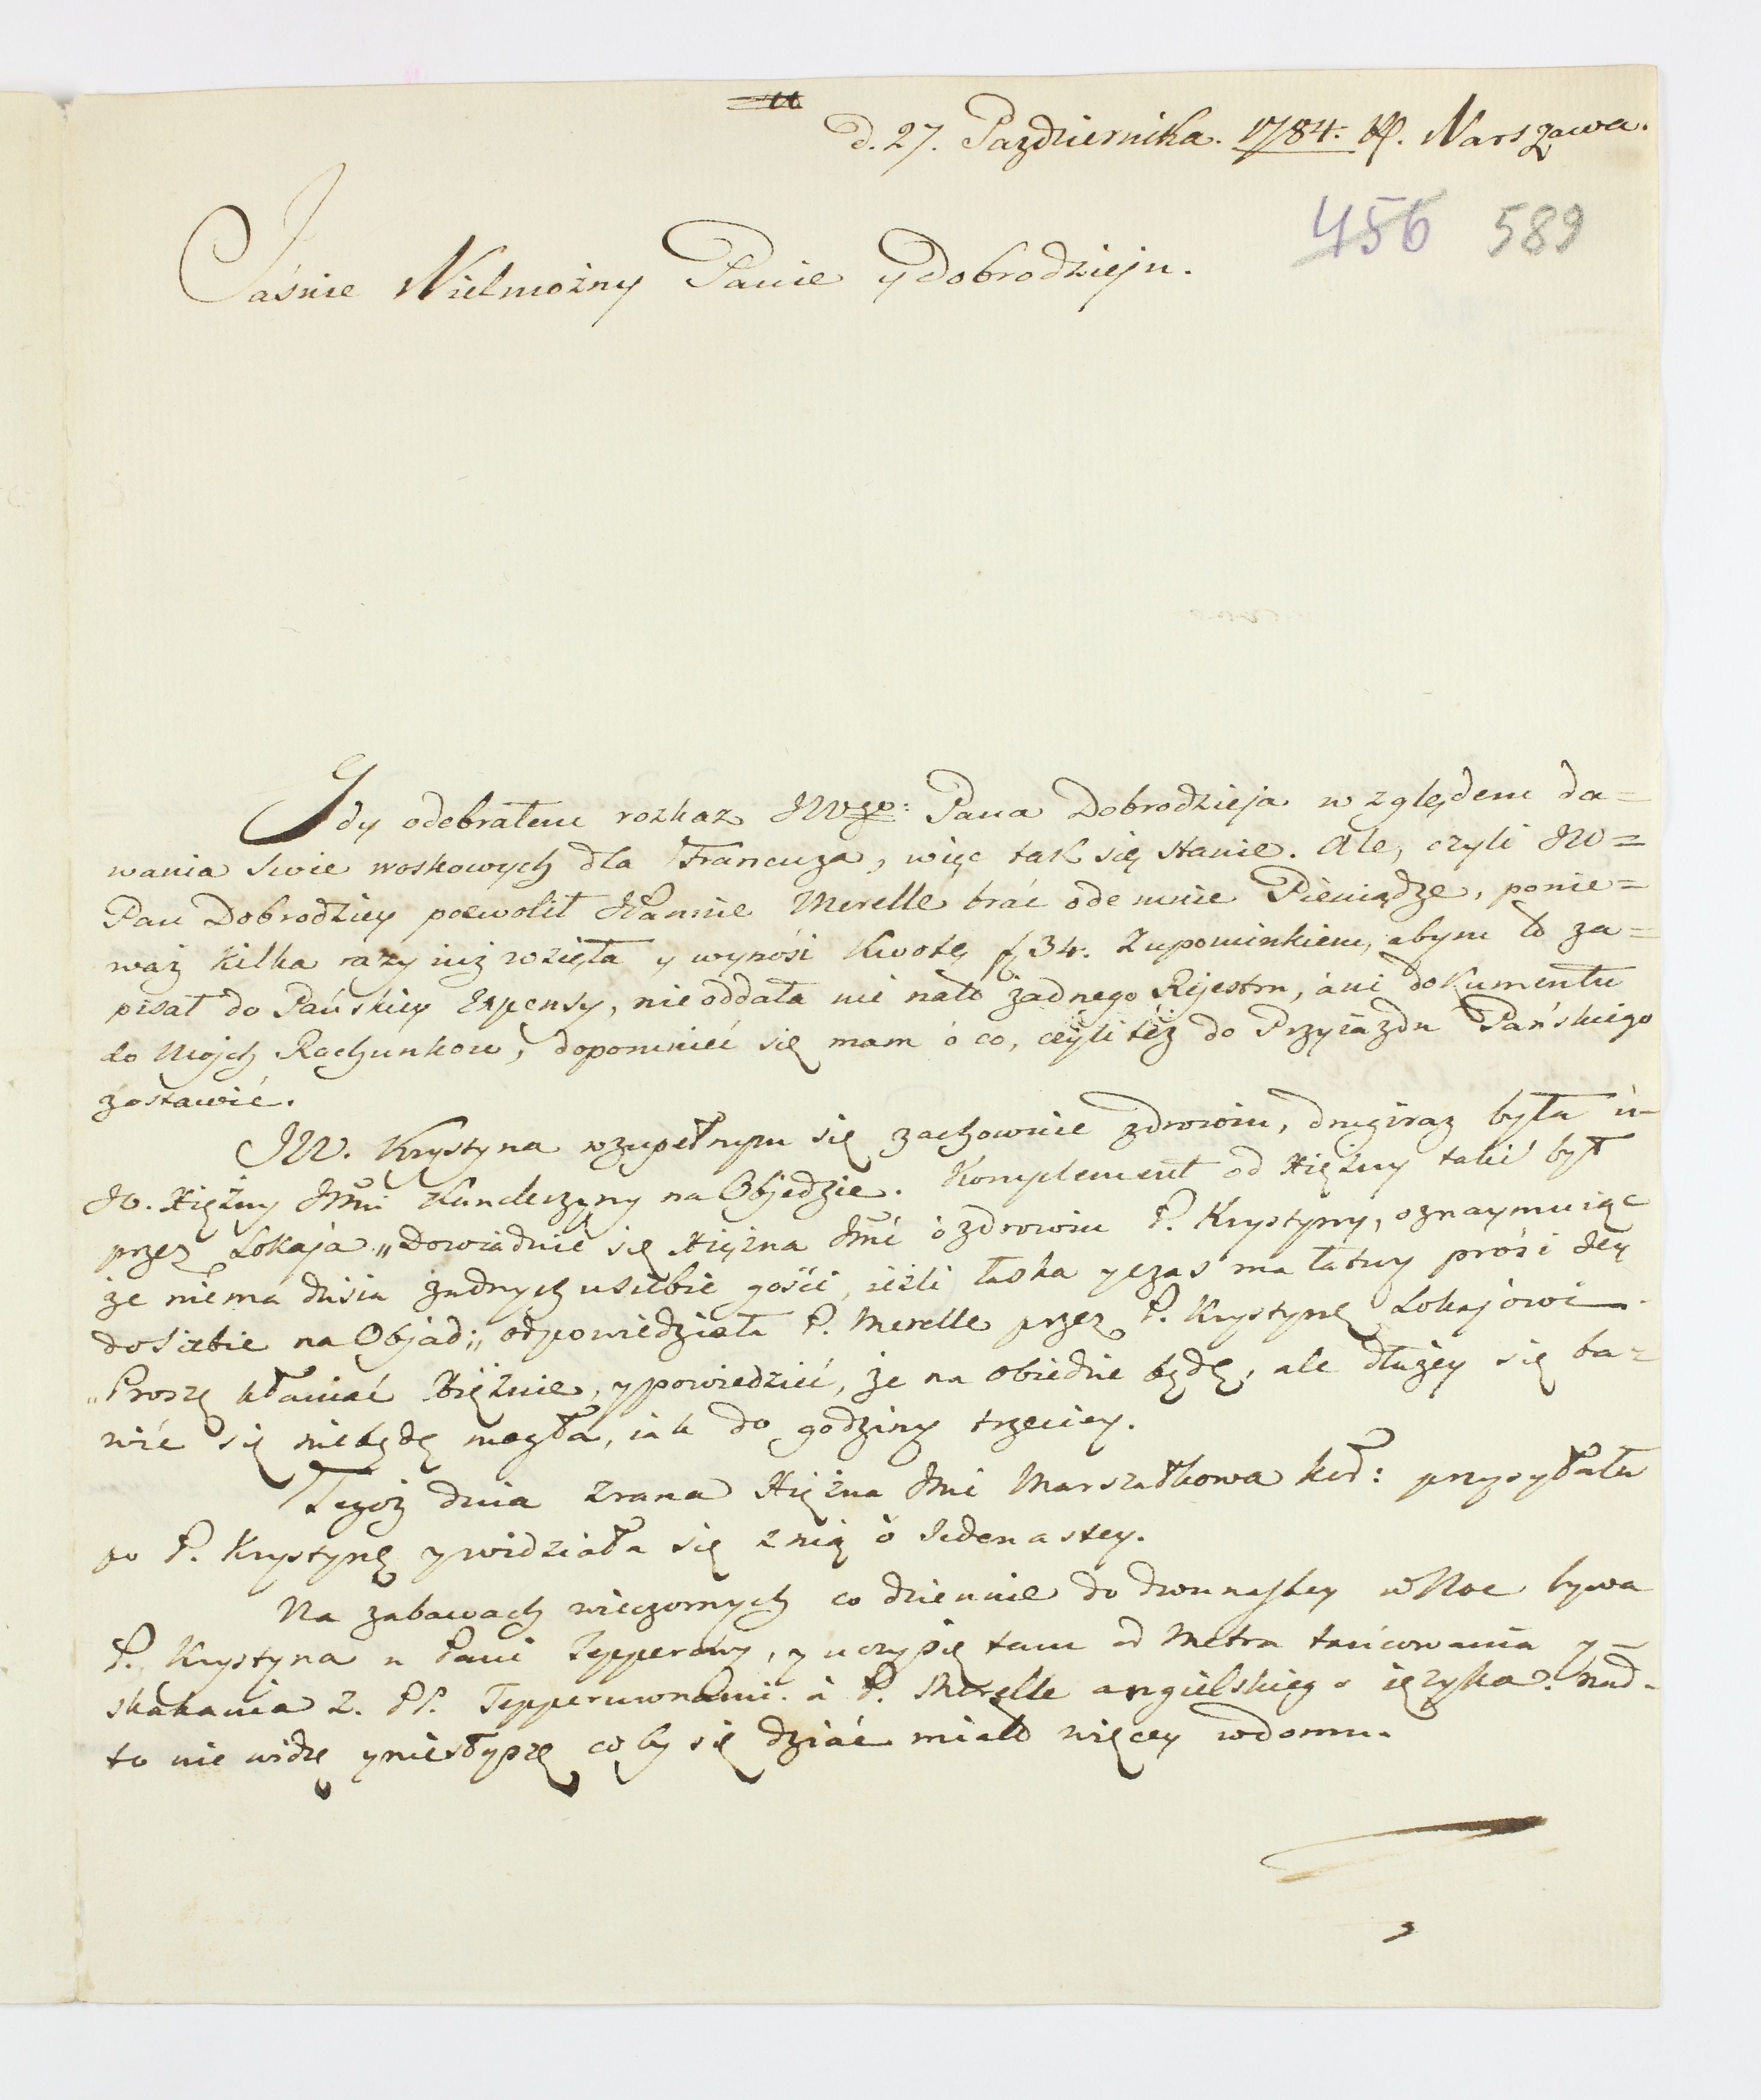 D. 27. Pazdziernika. 1784. Warszawa.
456 589
Jaśnie Wielmożny Panie y Dobrodzieju.
Gdy odebrałem rozkaz JWgo: Pana Dobrodzieja względem da=
wania Swic woskowych dla Francuza, więc tak się stanie. Ale, czyli JW=
Pan Dobrodziey pozwolił JPannie Merelle brać odemnie Pieniądze, ponie=
waż kilka razy iuż wzięła y wynosi Kwotę f 34. Zupominkiem, abym to za=
pisał do Pańskiey Expensy, nieoddała mi nato żadnego Rijestru, ani dokumentu
do Mojch Rachunkow, dopomnieć się mam ó co, czyli też do Przyiazdu Pańskiego
zostawić.
JW. Krystyna wzupełnym się zachowuie zdrowiu, drugiraz była ú-
JO. Xiężny JMci Kanclerzyny na Objedzie. Komplement od Xiężny takić był
przez Lokaja „Dowiaduie się Xiężna JMć ó zdrowiu P. Krystyny, oznaymuiąc
że niema dzisia żadnych usiebie gości, ieżli łaska y czas ma łatwy prosi Jey
do Siebie na Objad„ odpowiedziała P. Merelle przez P. Krystynę Lokajowi
„Proszę kłaniać Xiężnie, y powiedzieć, że na obiedzie będę, ale dłużey się ba=
wić się niebędę mogła, iak do godziny trzeciey.
Tegoż dnia zrana Xiężna JMci Marszałkowa przysyłała
po P. Krystynę y widziała się z nią ó Jedenastey.
Na zabawach wieczornych codziennie do dwunastey w Noc bywa
P. Krystyna u Pani Tepperowy, y uczy się tam od Metra tańcowania y
skakania z. PP. Tepperuwnami. á P. Merelle angielskiego ięzyka. Nad-
to nie widzę y niesłyszę co by się dziać miało więcey wdomu.